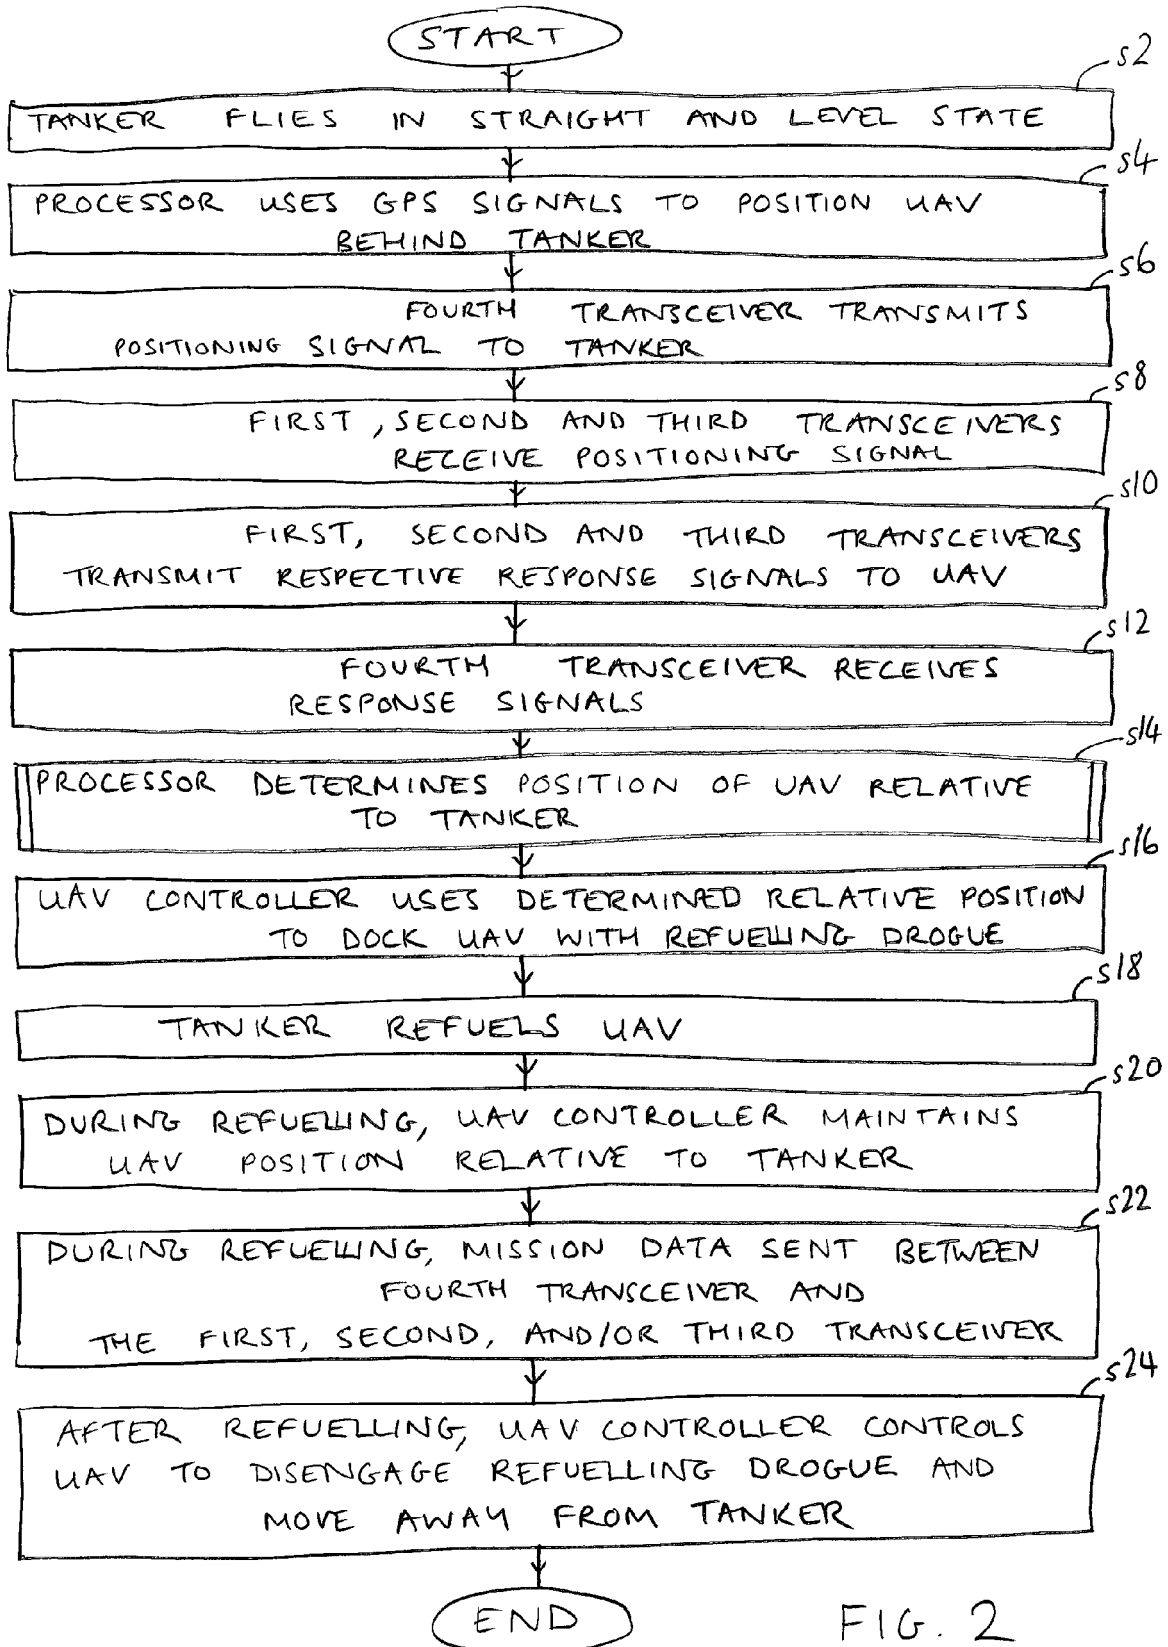 START
s2
TANKER FLIES IN STRAIGHT AND LEVEL STATE
s4
PROCESSOR USES GPS SIGNALS TO POSITION UAV
BEHIND TANKER
s6
FOURTH TRANSCEIVER TRANSMITS
POSITIONING SIGNAL TO TANKER
s8
FIRST, SECOND AND THIRD TRANSCEIVERS
RECEIVE POSITIONING SIGNAL
s10
FIRST, SECOND AND THIRD TRANSCEIVERS
TRANSMIT RESPECTIVE RESPONSE SIGNALS TO UAV
s12
FOURTH TRANSCEIVER RECEIVES
RESPONSE SIGNALS
s14
PROCESSOR DETERMINES POSITION OF UAV RELATIVE
TO TANKER
s16
UAV CONTROLLER USES DETERMINED RELATIVE POSITION
TO DOCK UAV WITH REFUELLING DROGUE
s18
TANKER REFUELS UAV
s20
DURING REFUELLING, UAV CONTROLLER MAINTAINS
UAV POSITION RELATIVE TO TANKER
s22
DURING REFUELLING, MISSION DATA SENT BETWEEN
FOURTH TRANSCEIVER AND
THE FIRST, SECOND, AND/OR THIRD TRANSCEIVER
s24
AFTER REFUELLING, UAV CONTROLLER CONTROLS
UAV TO DISENGAGE REFUELLING DROGUE AND
MOVE AWAY FROM TANKER
END
FIG. 2